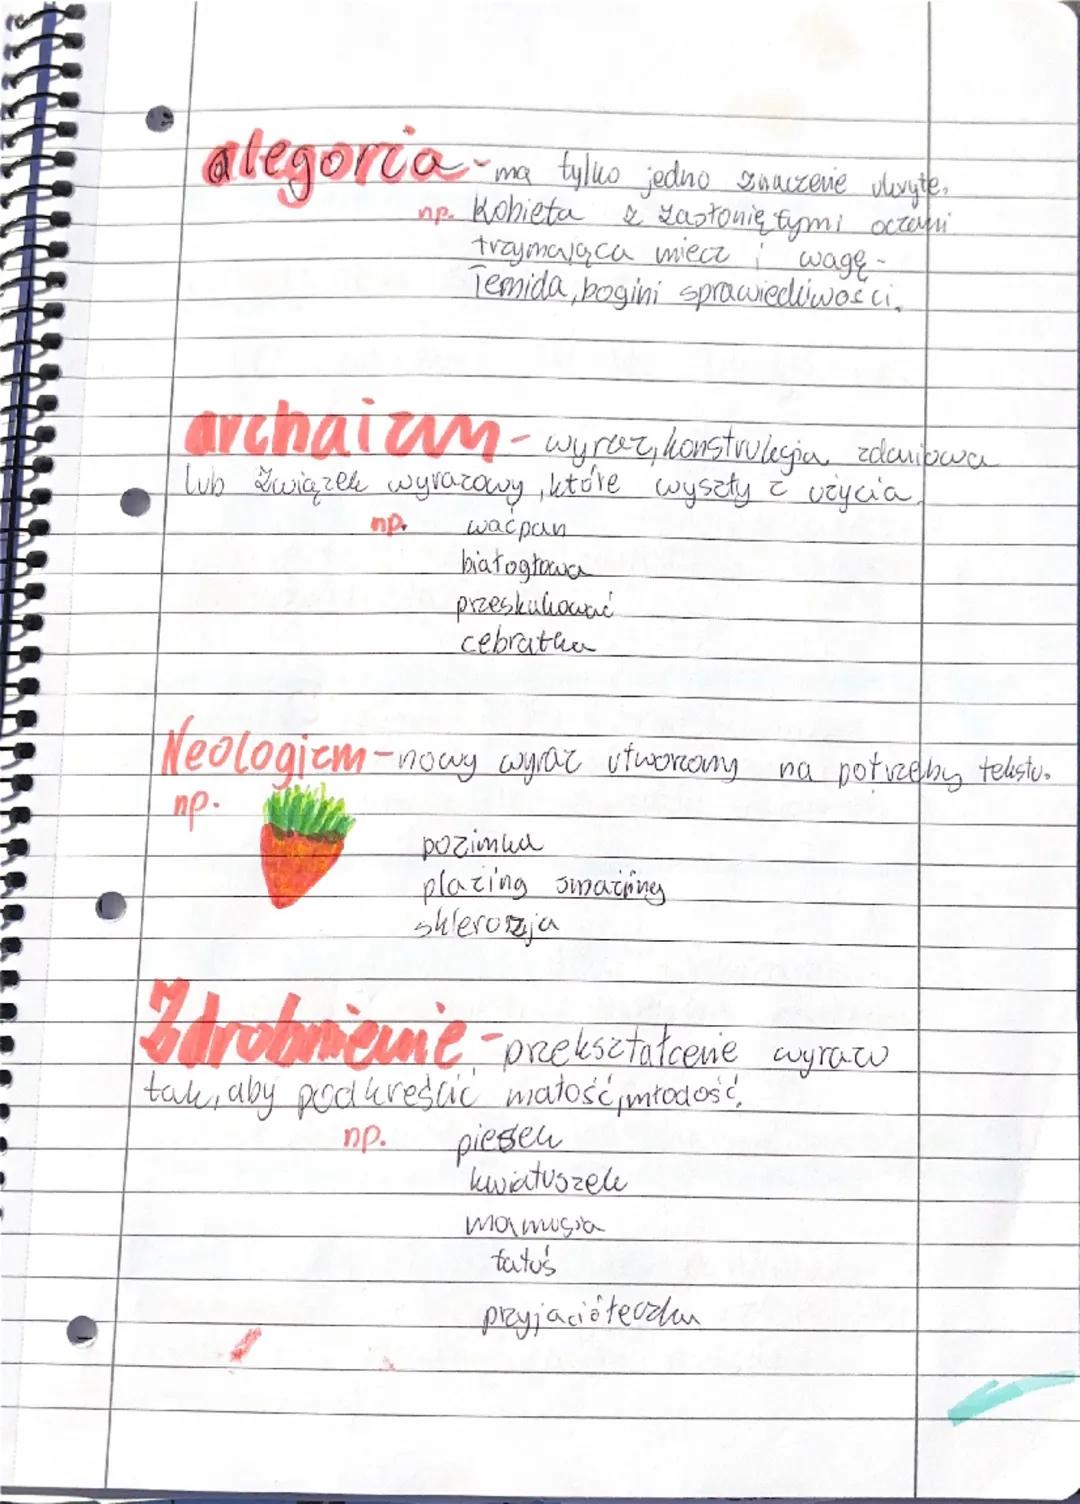 alegoria - ma tylko jedno znaczenie ukryte,
np. Kobieta z zasłoniętymi oczami
trzymająca miecz i wagę -
Temida, bogini sprawiedliwości.
archaizm - wyraz, konstrukcja zdaniowa
lub związek wyrazowy, które wyszły z użycia.
np. waćpan
białogłowa
przeskakować
cebratka
Neologizm - nowy wyraz utworzony na potrzeby tekstu.
np.
pozimka
plażing smażing
sklerozja
Zdrobnienie - przekształcenie wyrazu
tak, aby podkreślić małość, młodość.
np. piesek
kwiatuszek
mamusia
tatuś
przyjaciółeczka